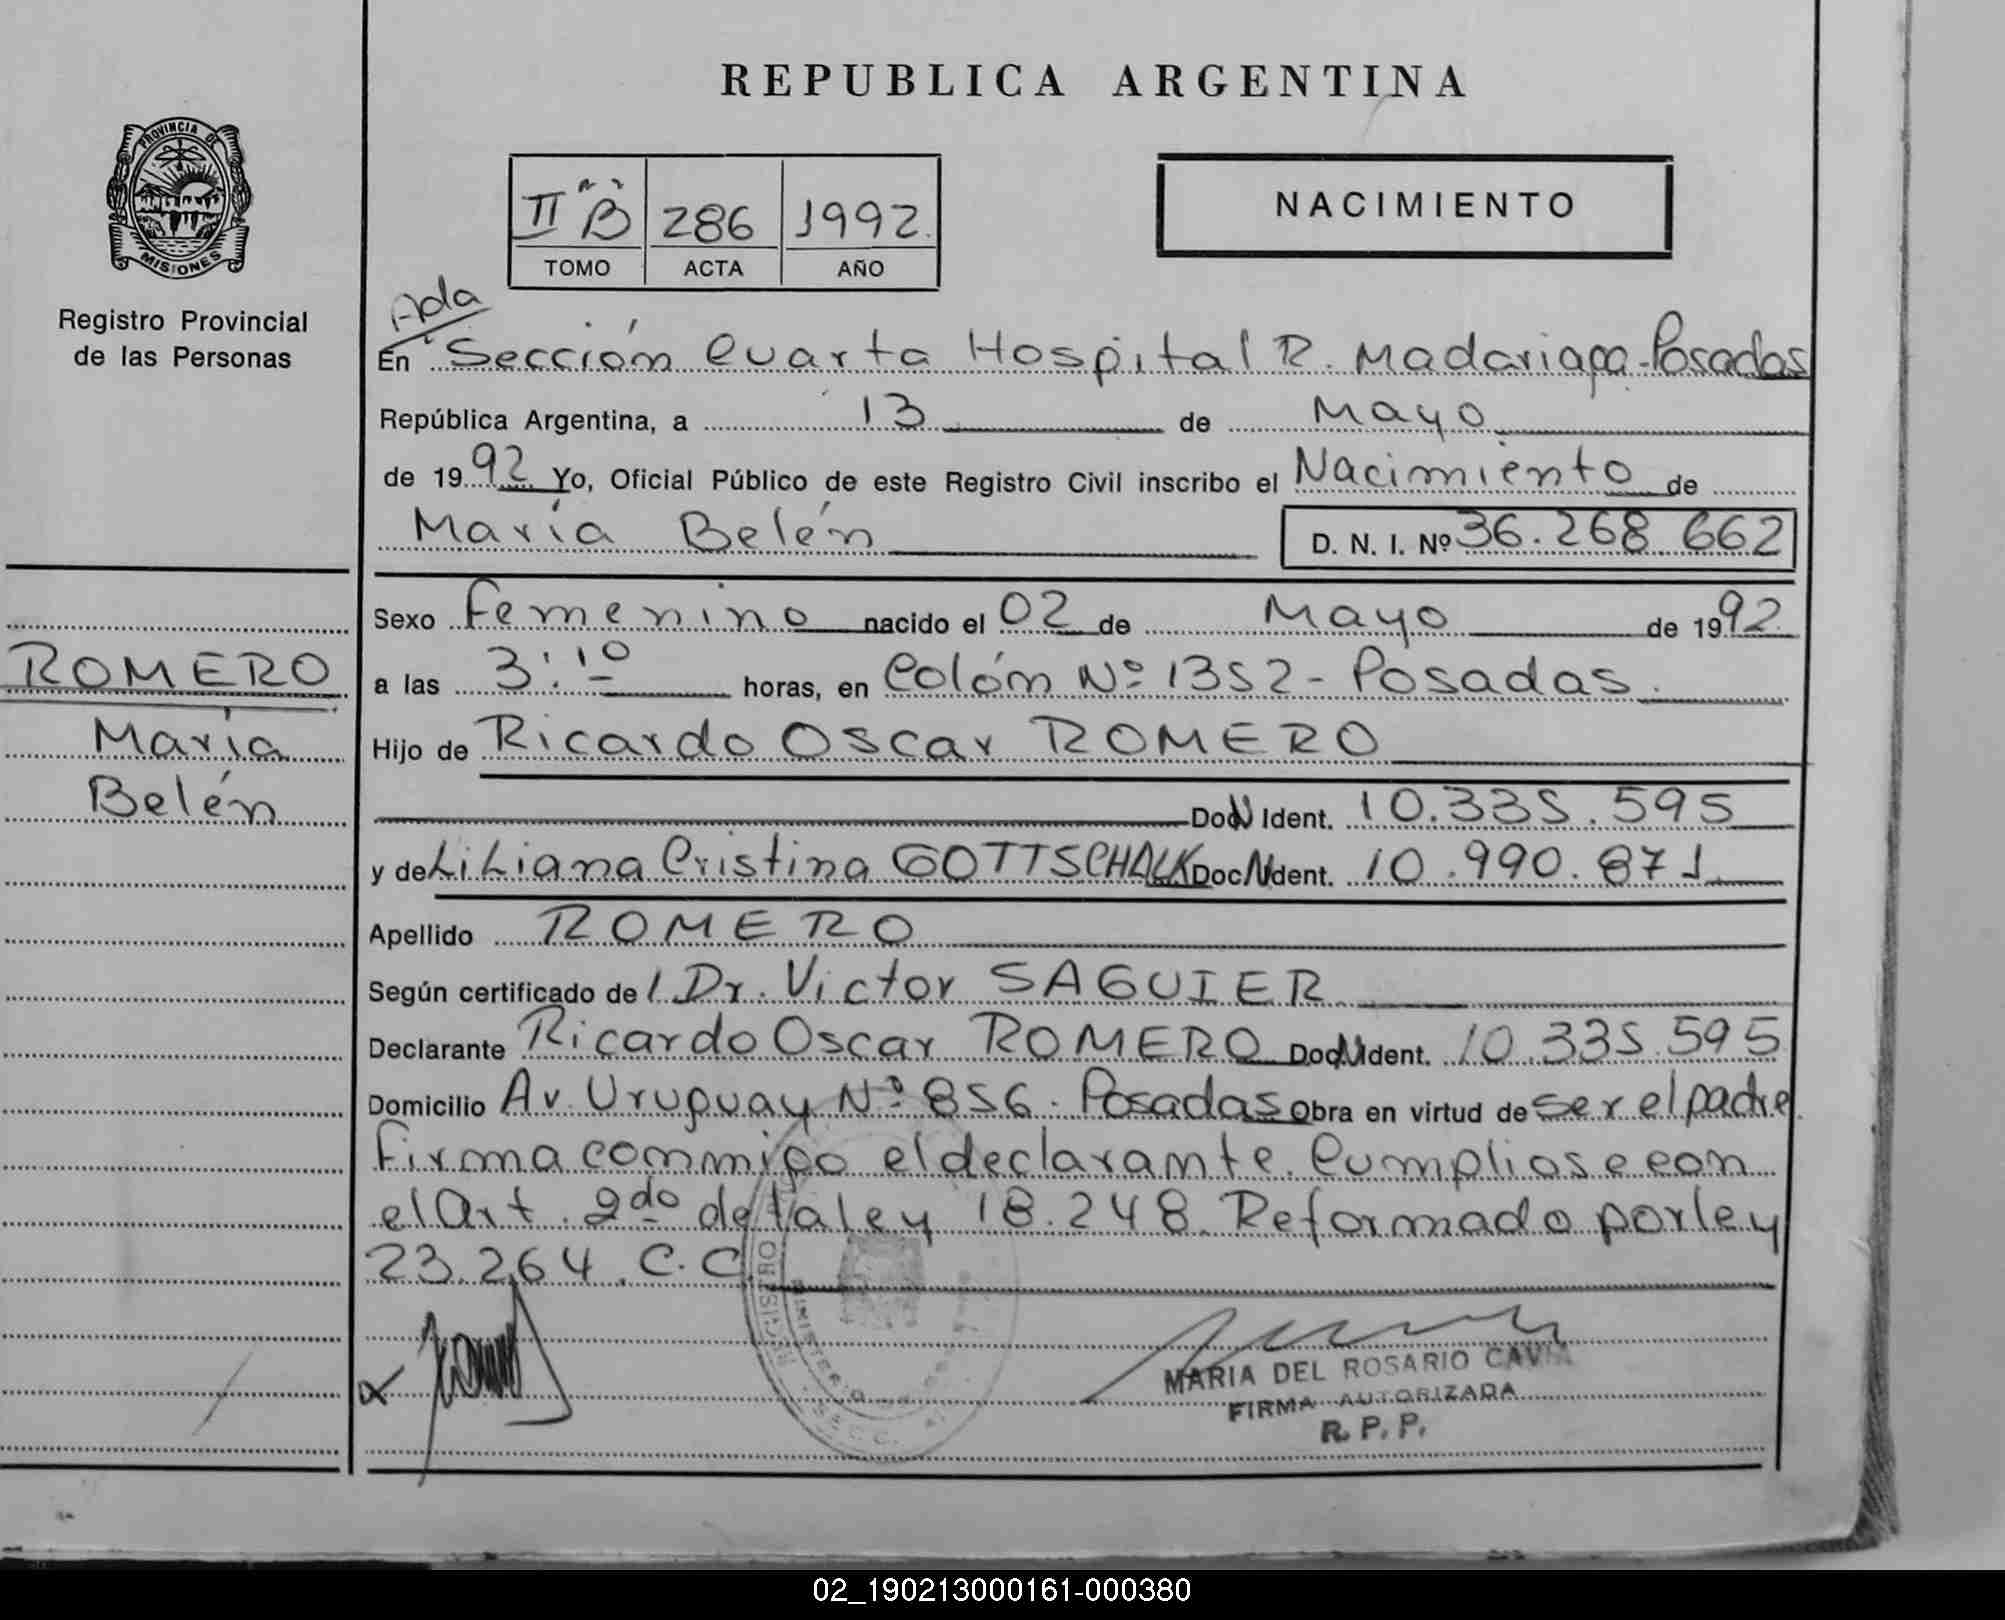 REPUBLICA ARGENTINA
PROVINCIA DE
MISIONES
Registro Provincial
de las Personas
II "B" 286 1992.
TOMO ACTA AÑO
NACIMIENTO
Ada
En Sección Cuarta Hospital R. Madariaga-Posadas
República Argentina, a 13 de Mayo
de 1992 Yo, Oficial Público de este Registro Civil inscribo el Nacimiento de
María Belén D. N. I. Nº 36.268.662
Sexo Femenino nacido el 02 de Mayo de 1992.
a las 3:10 horas, en Colón Nº 1352 - Posadas.
Hijo de Ricardo Oscar ROMERO
Doc N Ident. 10.335.595
y de Liliana Cristina GOTTSCHALK Doc N Ident. 10.990.871
Apellido ROMERO
Según certificado de l Dr. Victor SAGUIER
Declarante Ricardo Oscar ROMERO Doc N Ident. 10.335.595
Domicilio Av. Uruguay Nº 856 - Posadas Obra en virtud de ser el padre
Firma conmigo el declarante. Cumpliose con
el Art. 2do de la ley 18.248. Reformado por ley
23.264. C.C.
ROMERO
María
Belén
REGISTRO
MARIA DEL ROSARIO
FIRMA AUTORIZADA
R. P. P.
02_190213000161-000380